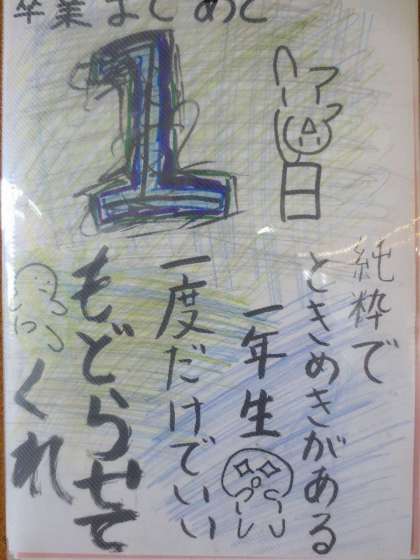 卒業まであと
1
日
純粋で
ときめきがある
一年生
一度だけでいい
もどらせて
くれ